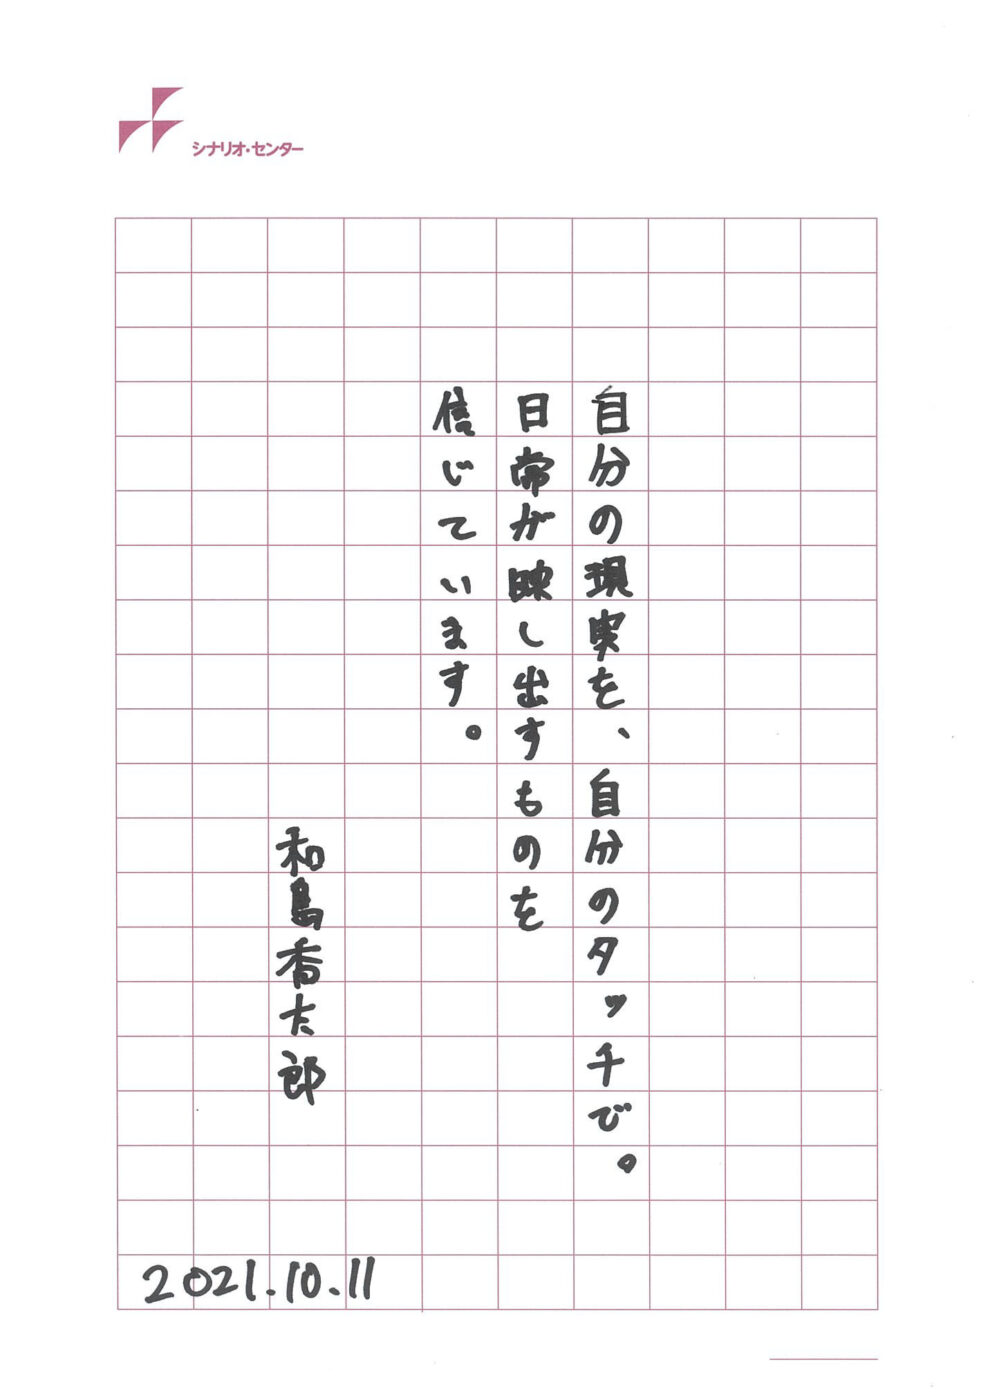 シナリオ・センター
自分の現実を、自分のタッチで。
日常が映し出すものを
信じています。
和島香太郎
2021.10.11